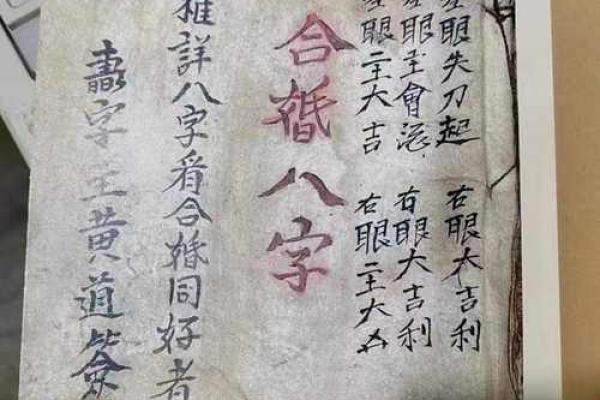 左眼失刀起 右眼大吉利
左眼主會 右眼大吉利
左眼二主大吉 右眼二主大凶
合婚八字
推詳八字看合婚同好者
字主黃道